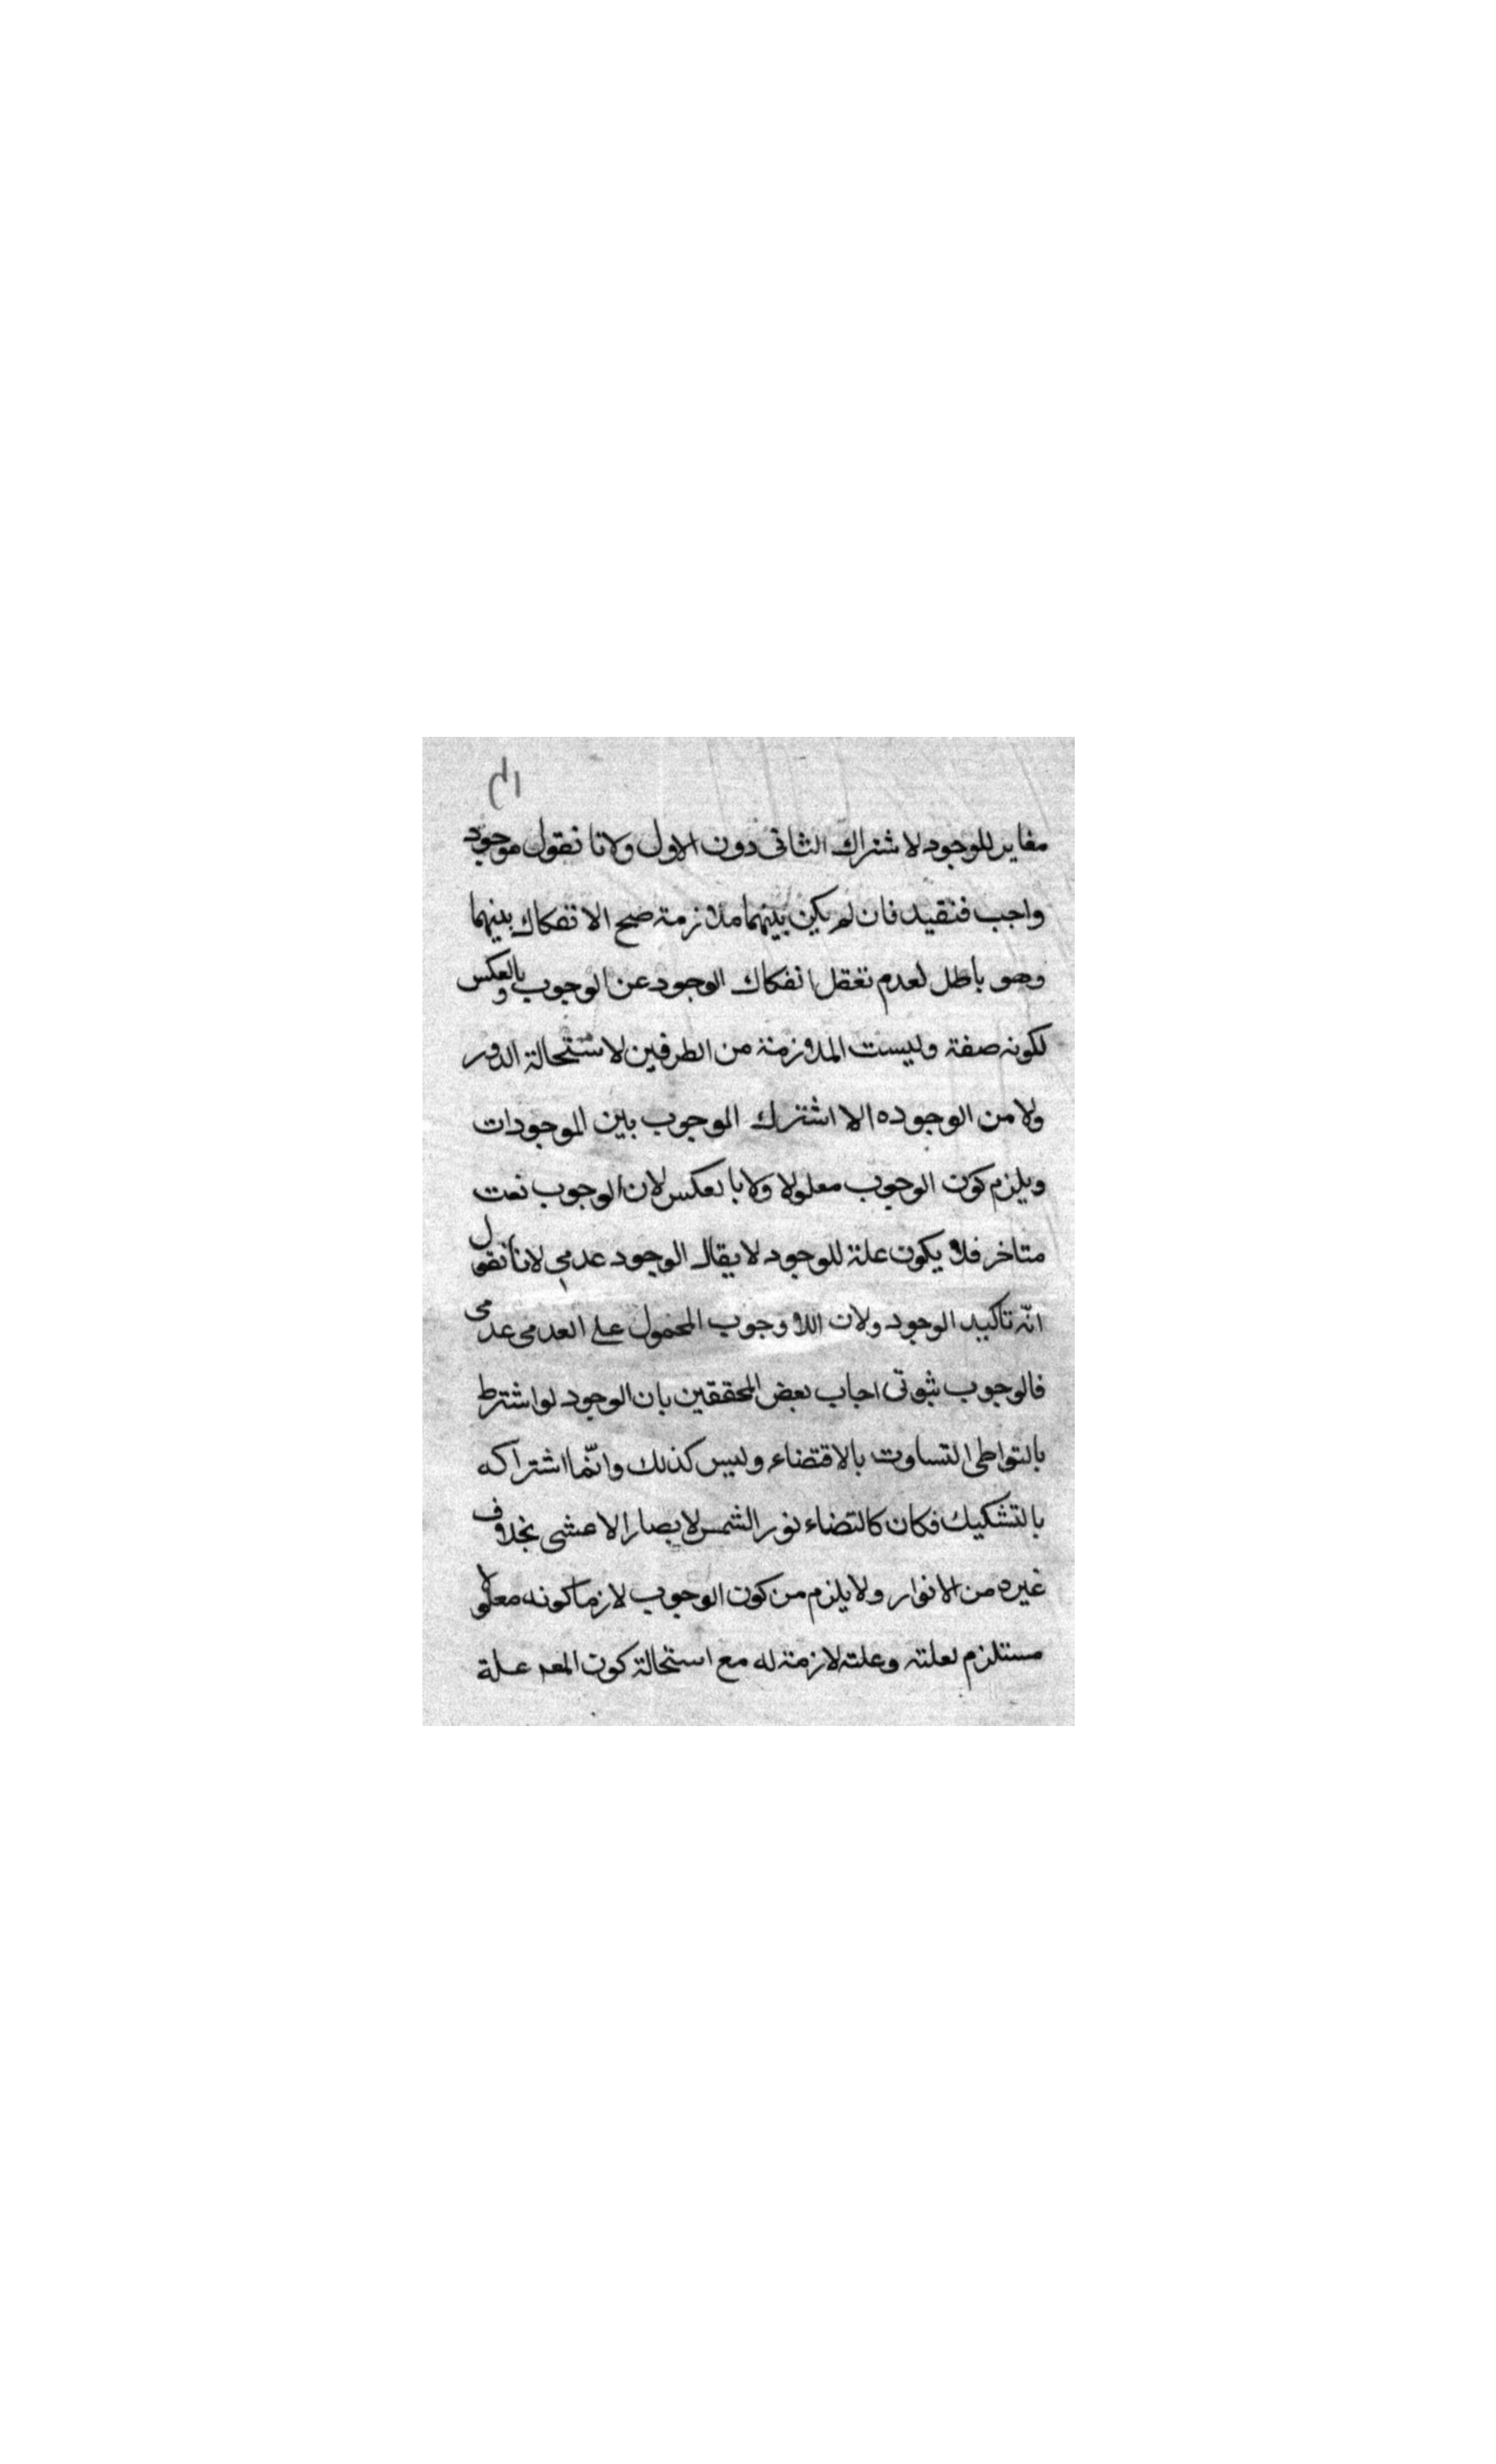 مغاير للوجود لاشتراك الثانى دون الاول ولانا نقول موجود
واجب فنقيد فان لم يكن بينهما ملازمة صح الانفكاك بينهما
وهو باطل لعدم تعقل انفكاك الوجود عن الوجوب وبالعكس
لكونه صفة وليست الملازمة من الطرفين لاستحالة الدور
ولا من الوجود ه الا اشترك الوجوب بين الموجودات
ويلزم كون الوجوب معلولا ولا بالعكس لان الوجوب نعت
متاخر فلا يكون علة للوجود لا يقال الوجود عدمي لانا نقول
انّه تاكيد الوجود ولان اللا وجوب المحمول على العدمى عدمى
فالوجوب ثبوتى اجاب بعض المحققين بان الوجود لو اشترط
بالتواطى لتساوت بالاقتضاء وليس كذلك وانّما اشتراكه
بالتشكيك فكان كالتضاء نور الشمس لابصار الاعشى بخلاف
غيره من الانوار ولا يلزم من كون الوجوب لازما كونه معلولا
مستلزم لعلته وعلته لازمة له مع استحالة كون المعـ علة